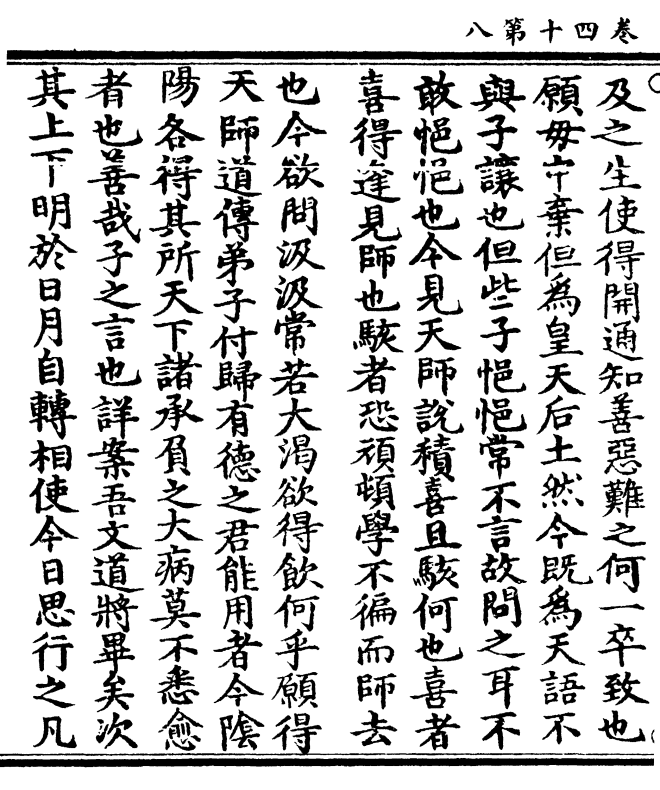 卷四十第八
及之生使得開通知善惡難之何一卒致也
願毋中棄但為皇天后土然今既為天語不
與子讓也但些子悒悒常不言故問之耳不
敢悒悒也今見天師說積喜且駭何也喜者
喜得逢見師也駭者恐頑頓學不徧而師去
也今欲問汲汲常若大渴欲得飲何乎願得
天師道傳弟子付歸有德之君能用者今陰
陽各得其所天下諸承負之大病莫不悉愈
者也善哉子之言也詳案吾文道將畢矣次
其上下明於日月自轉相使今日思行之凡